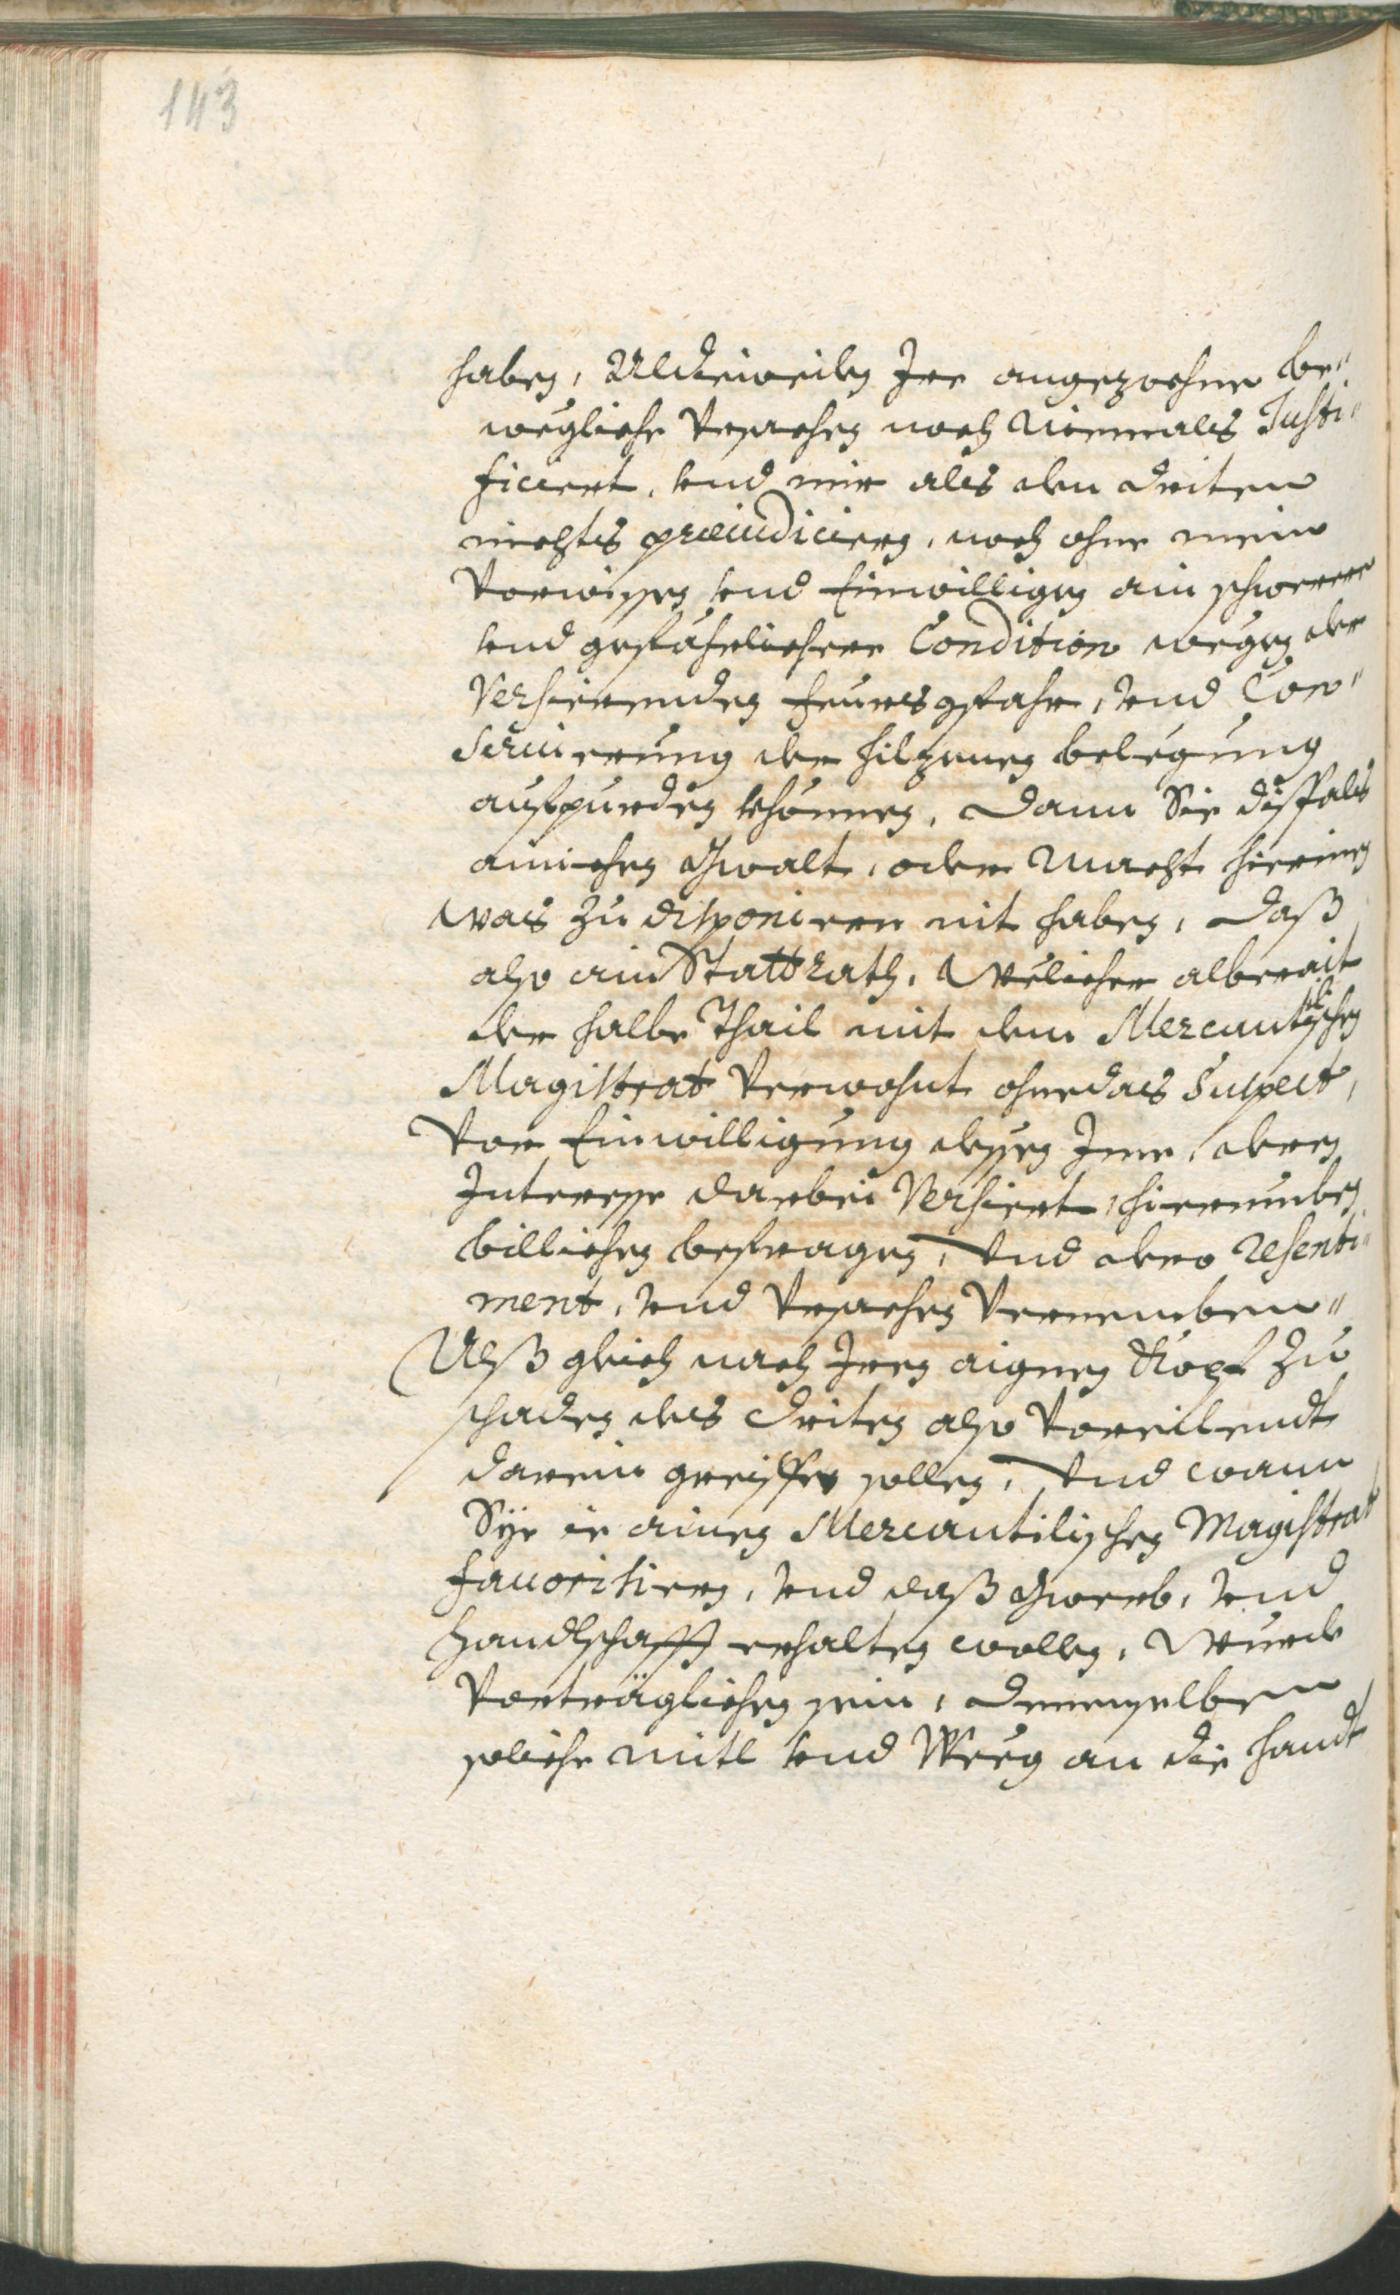 143
haben, Alldieweilen Ire angezochne be"
wegliche Vrsachen noch niemals Justi"
ficiert, vnd mir als den driten
nichts præiudiciern, noch ohne mein
Vorwissen vnd Einwilligen ain schwerere
vnd gefährlichere Condition wegen der
Versierenden Feursgfahr, vnd Con"
seruierung der hilzenen belegung
aufpürden khönnen, dann Sie dißfals
ainichen Gwalt, oder Macht hierinen
was zu disponieren nit haben, daß
also ain Stattrath, Welicher alberait
der halbe Thail mit dem Mercantilischen
Magistrat Verwohnt ohnedas Suspect,
Vor Einwilligung dessen Jene, deren
Interesse darbei Versiert, hierumben
billichen befragen, Vnd dero resenti"
ment, vnd Vrsachen Vernemben"
Alß gleich nach Iren aignen Kopf zu
schaden des driten also Voreillendt
darein greiffen sollen, Vnd wann
Sye ie ainen Mercantilischen Magistrat
fauorisiern, vnd daß Gwerb, vnd
Handlschafft erhalten wollen, Wurde
Verträglichen sein, denenselben
soliche mitl vnd Weeg an die handt